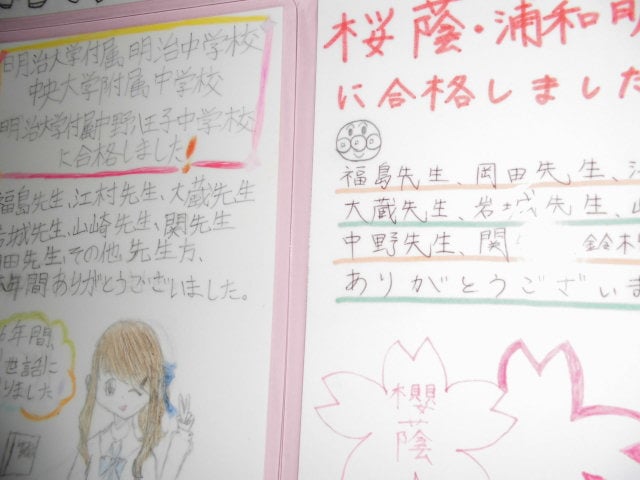 明治大学付属明治中学校
中央大学附属中学校
明治大学付属中野八王子中学校
に合格しました!
福島先生、江村先生、大蔵先生
岩城先生、山崎先生、関先生
田先生、その他、先生方、
年間ありがとうございました。
年間、
世話に
りました
桜蔭・浦和明
に合格しました
福島先生、岡田先生、江
大蔵先生、岩城先生、山
中野先生、関 鈴木
ありがとうございま
櫻
蔭